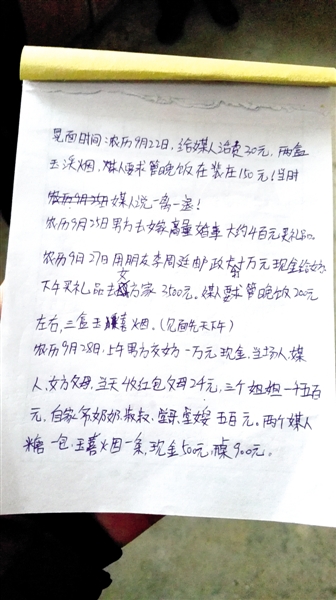 见面时间:农历9月22日,给媒人治费30元,两盒
玉溪烟,媒人要求管晚饭在 装在150元(当时
媒人说一离一退!
农历9月25日男方去嫁 商量婚事大约4百元买礼品。
农历9月27日用朋友李周廷邮政 十万元现金给
下午买礼品去女方家3500元。媒人要求管晚饭200元
左右,三盒玉喜烟。(见面先天下午)
农历9月28日,上午男方交女方一万元现金,当场人,媒
人,女方父母,当天收红包父母24元,三个姐姐一千五百
元,自家爷奶奶,叔叔, 五百元。两个媒人
糖一包,玉喜烟一条,现金50元, 900元。